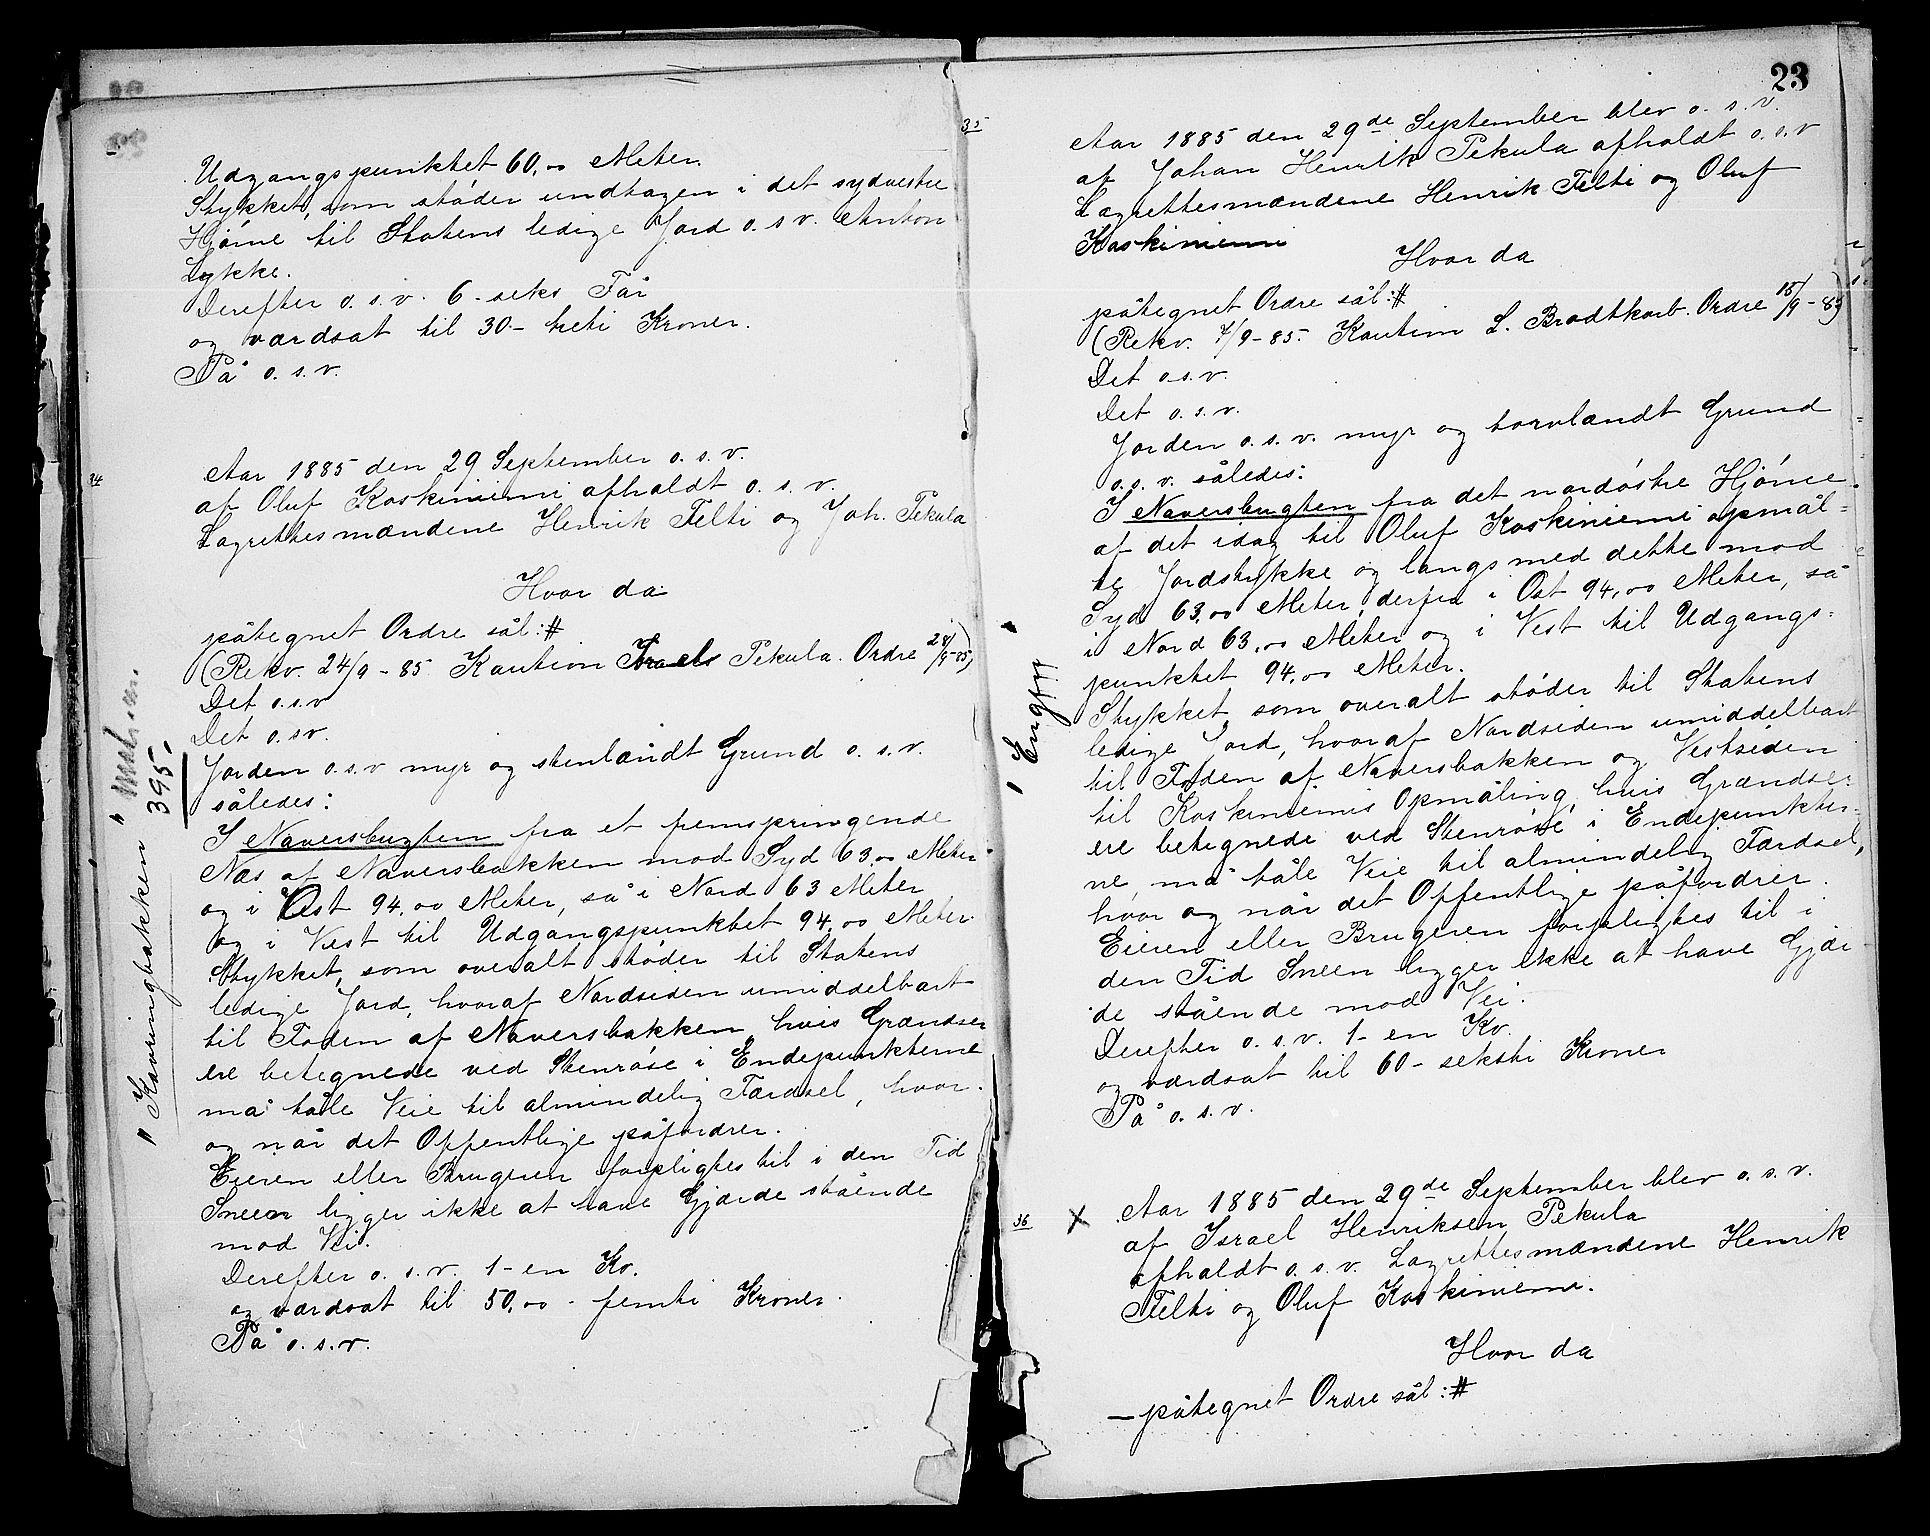 Udgangspunktet 60,00 Meter.
Stykket, som støder undtagen i det sydvestre
Hjørne til Statens ledige Jord o.s.v. Anton
Lykke.
Derefter o.s.v. 6 - seks Får
og værdsat til 30 - treti Kroner.
På o.s.v.
34
Aar 1885 den 29 September o.s.v.
af Oluf Koskiniemi afholdt o.s.v.
Lagrettesmændene Henrik Felti og Joh. Pekula
Hvor da
påtegnet Ordre sål: #
(Rekv. 24/9 - 85 Kaution Israels Pekula. Ordre 24/9-85)
Det o.s.v
Det o.s.v.
Jorden o.s.v myr og stenlændt Grund o.s.v.
således:
I Naversbugten fra et fremspringende
Næs af Naversbakken mod Syd 63,00 Meter
og i Øst 94,00 Meter, så i Nord 63 Meter
og i Vest til Udgangspunktet 94,00 Meter.
Stykket, som overalt støder til Statens
ledige Jord, hvoraf Nordsiden umiddelbart
til Foden af Naversbakken, hvis Grændser
ere betegnede ved Stenrøse i Endepunkterne
må tåle Veie til almindelig Færdsel, hvor
og når det Offentlige påfordrer.
Eieren eller Brugeren forpligtes til i den Tid
Sneen ligger ikke at have Gjærde stående
mod Vei.
Derefter o.s.v. 1 - en Ko.
og værdsat til 50,00 - femti Kroner.
På o.s.v.
" Kavringbakken "
395.
23
35
Aar 1885 den 29de September blev o.s.v.
af Johan Henrik Pekula afholdt o.s.v
Lagrettesmændene Henrik Felti og Oluf
Koskiniemi
Hvor da
påtegnet Ordre sål: #
(Rekv. 7/9 - 85. Kaution L. Brodtkorb. Ordre 15/9 - 85)
Det o.s.v.
Det o.s.v.
Jorden o.s.v. myr og torvlændt Grund
o.s.v. således:
I Naversbugten fra det nordøstre Hjørne
af det idag til Oluf Koskiniemi opmål=
te Jordstykke og langsmed dette mod
Syd 63,00 Meter, derfra i Øst 94,00 Meter, så
i Nord 63,00 Meter og i Vest til Udgangs=
punktet 94,00 Meter.
Stykket, som overalt støder til Statens
ledige Jord, hvoraf Nordsiden umiddelbart
til Foden af Naversbakken og Vestsiden
til Koskiniemis Opmåling, hvis Grændser
ere betegnede ved Stenrøse i Endepunkter-
ne, må tåle Veie til almindelig Færdsel,
hvor og når det Offentlige påfordrer.
Eieren eller Brugeren forpligtes til i
den Tid Sneen ligger ikke at have Gjær
de stående mod Vei.
Derefter o.s.v. 1 - en Ko.
og værdsat til 60 - seksti Kroner
På o.s.v.
36 X
Aar 1885 den 29de September blev o.s.v.
af Israel Henriksen Pekula
afholdt o.s.v. Lagrettesmændene Henrik
Felti og Oluf Koskiniemi.
Hvor da
— påtegnet Ordre sål: #